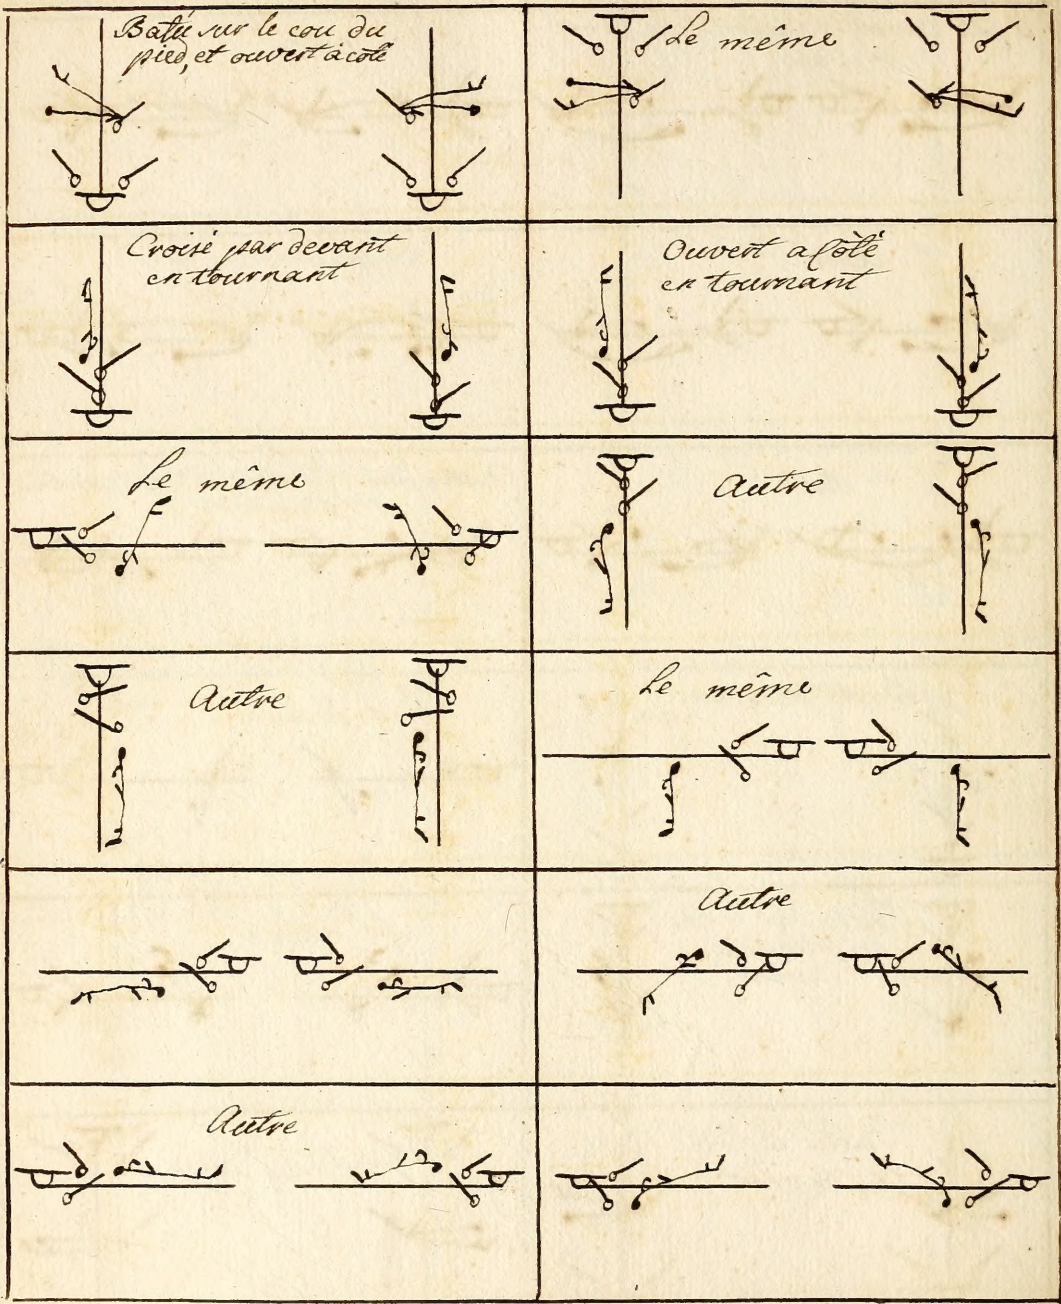 Batú sur le cou du
pied, et ouvert à coté
Le même
Croisé par devant
en tournant
Ouvert a Côté
en tournant
Le même
Autre
Autre
Le même
Autre
Autre